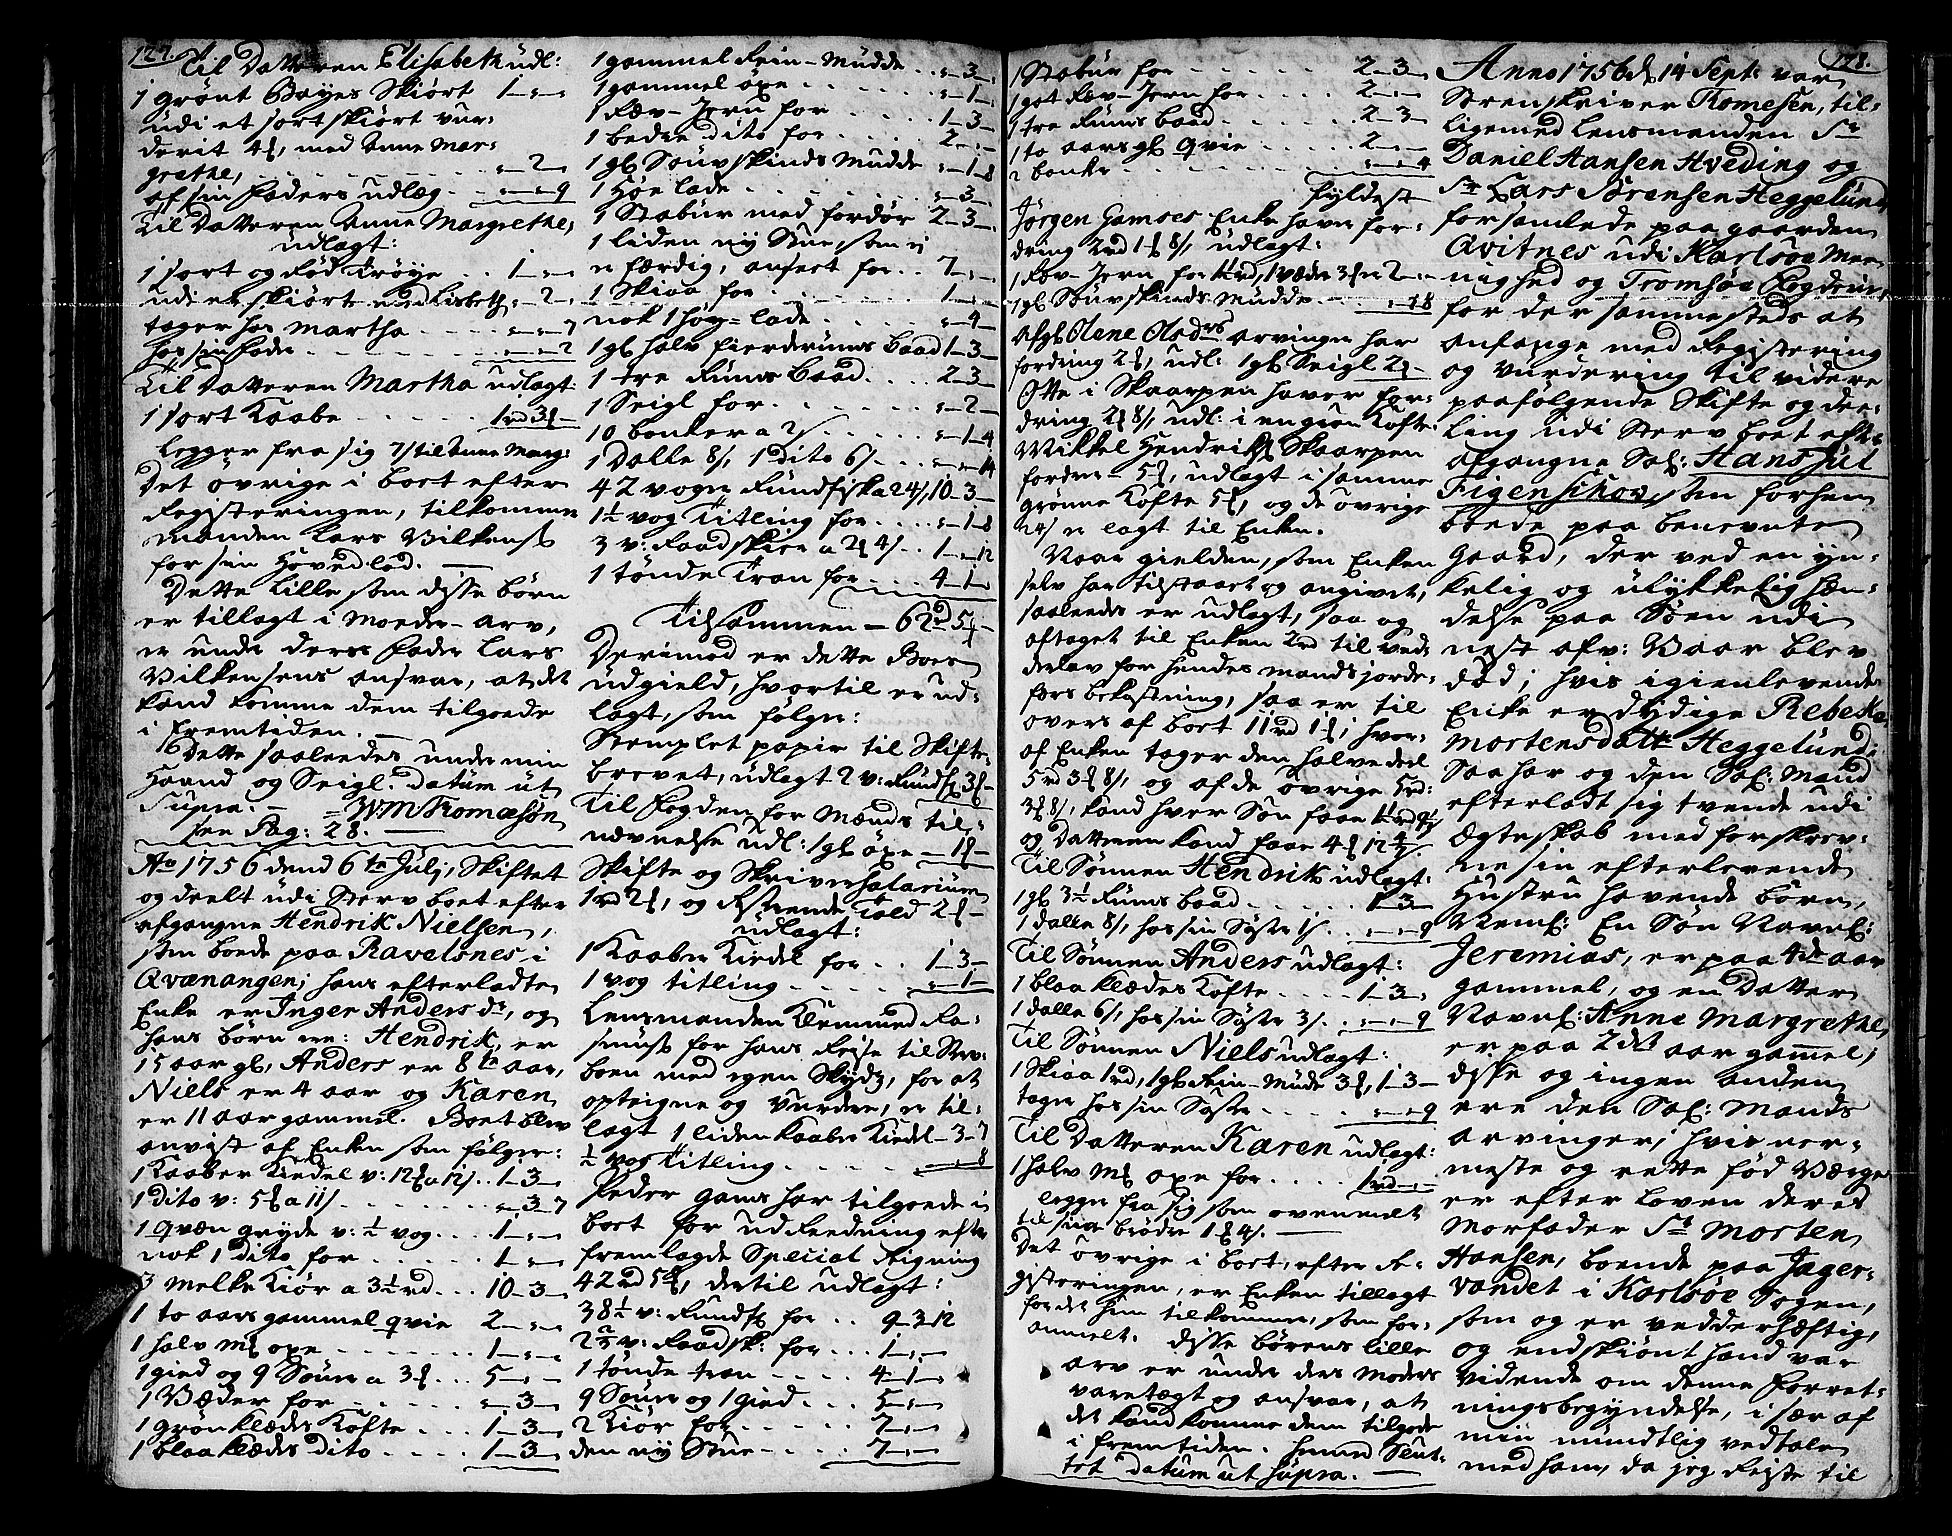 127.
Til Datteren Elisabeth udl:
1 grønt Bayes Skiørt 1 - „ -
udi et sort skiørt vur-
derit 4 ß, med Anne Mar-
grethe, „ - 2 -
af sin Faders udlæg „ - „ - 9
Til Datteren Anne Margrethe,
udlagt:
1 sort og Rød Trøye 1 - „ -
udi et skiørt med Lisbeth „ - 2 -
tager hos Martha „ - „ - 7
hos sin Fader „ - „ - 2
Til Datteren Martha udlagt:
1 sort Kaabe 1 rd 3 -
legger fra sig 7 ß til Anne Marg:
Det øvrige i boet efter
Registeringen, tilkommer
manden Lars Vilkens
for sin Hoved-lod.
Dette lille som disse børn
er tillagt i Moder-arv,
er under deres Fader Lars
Vilkensens ansvar, at det
kand komme dem tilgode
i fremtiden.
Dette saaledes under min
Haand og Seigl. Datum ut
Supra. - WM Thomæsøn
see Pag: 28.
Ao 1756 dend 6te Julj, Skiftet
og deelt udi Sterv boet efter
afgangne Hendrik Nielsen,
som boede paa Ravelsnes i
Qvænangen; hans efterladte
Enke er Inger Anders dr, og
hans børn ere: Hendrik, er
15 aar gl, Anders er 8te aar,
Niels er 4 aar og Karen
er 11 aar gammel. Boet blev
anvist af Enken som følger:
1 Kaaber Kiedel v: 12 a 12 ß 1 - 3 -
1 dito v: 5 a 11 ß „ - 3 - 7
1 qvæn gryde v: ½ vog 1 - „ -
nok 1 dito for 1 - „ -
3 melke Kiør a 3½ rd 10 - 3 -
1 to aars gammel qvie 2 - „ -
1 halv Ml oxe 1 - „ -
1 gied og 9 Søuer a 3 5 - „ -
1 Væder for „ - 3 -
1 grøn klædes Kofte 1 - 3 -
1 blaa klædes dito 1 - 3 -
1 gammel Rein-Mudde „ - 3 -
1 gammel øxe „ - 1 -
1 Ræv-Jern for 1 - 3 -
1 bedre dito for 2 - „ -
1 gl Souvskinds Mudde „ - 1 - 8
1 Høe lade „ - 3 -
1 Stabur med fordør 2 - 3 -
1 liden ny Stue, som ei
er færdig, ansert for 7 - „ -
1 Skiaa for 1 - „ -
nok 1 høy-lade „ - 4 -
1 gl halv fierderums baad 1 - 3 -
1 tre Rums baad 2 - 3 -
1 Seigl for „ - 2 -
10 bonker a 2 ß „ - 1 - 4
1 Dalle 8 ß, 1 dito 6 ß „ - „ - 14
42 voger Rundfisk a 24 ß 10 - 3 -
1½ vog Titling for „ - 1 - 8
3 v: Raadskier a 2 4 ß 1 - „ - 12
1 tønde Tran for 4 - 1 -
Tilsammen - 62 rd 5 -
Derimod er dette Boes
udgield, hvortil er ud-
lagt, som følger:
Stemplet papir til Skifte-
brevet, udlagt 2 v: Rundf 3 -
Til Fogden for Mænds til-
nævnelse udl: 1 gl øxe - 1 -
Skifte og Skriver Salarium
1 rd 2, og Restende Told 2 -
udlagt:
1 Kaaber Kiedel for 1 - 3 -
1 vog titling „ - 1 -
Lensmanden Klemmed Ra-
smus for hans Reise til Ster-
boen med egen Skyds, for at
opteigne og vurdere, er til-
lagt 1 liden Kaaber Kiedel - 3 - 7
½ vog Titling „ - „ - 8
Peder Gams har tilgode i
boet for udReedning efter
fremlagde Special Rigning
42 rd 5, dertil udlagt:
38½ v: Rundf for 9 - 3 12
2⅔ v: Raadsk: for 1 - „ -
1 tønde tran 4 - 1 -
9 Søuer og 1 gied 5 - „ -
2 Kiør for 7 - „ -
den ny Stue 7 - „ -
1 Stabur for 2 - 3 -
1 got Ræv-Jern for 2 - „ -
1 tre Rums baad 2 - 3 -
1 to aars gl qvie 2 - „ -
2 bonker „ - „ - 4
fyldest
Jörgen Gamses Enke haver for-
dring 2 rd 1 8 ß, udlagt:
1 Ræv-Jern for 1½ rd, 1 væder 3 er 2 - „ -
1 gl Souvskinds Mudde „ - 1 8
Afgl Olene Olsdrs arvinger har
fordring 2, udl: 1 gl Seigl 2 -
Otte i Skaarpen haver for-
dring 2 8 ß, udl: i en grøn Kofte
Mikkel Hendriks Skaarpen
fordrer 5, udlagt i samme
grønne Kofte 5, og de øvrige
24 ß er lagt til Enken.
Naar gielden, som Enken
selv har tilstaaet og angivet,
saaledes er udlagt, saa og
aftaget til Enken 2 rd til ved-
derlav for hendes mands jorde-
færs bekostning, saa er til
overs af boet 11 rd 1; hvor-
af Enken tager den halve deel
5 rd 3 8 ß, og af de øvrige 5 rd:
3 8 ß, kand hver Søn faae 1 rd
og Datteren kand faae 4 12 4/7 ß.
Til Sønnen Hendrik udlagt:
1 gl 3½ Rums baad 1 - 3 -
1 dalle 8 ß, hos sin Syster 1 ß „ - „ - 9
Til Sønnen Anders udlagt:
1 blaa klædes Kofte 1 - 3 -
1 dalle 6 ß, hos sin Syster 3 ß „ - „ - 9
Til Sønnen Niels udlagt:
1 Skiaa 1 rd, 1 gl Rein-Mude 3, 1 - 3 -
tager hos sin Syster „ - „ - 9
Til Datteren Karen udlagt:
1 halv Ml oxe for 1 rd - „ -
legger fra sig som ovenmelt
til sine brødre 1 4 ß.
Det øvrige i boet, efter Re-
gisteringen, er Enken tillagt
for det hun tilkommer, som for-
anmelt. Disse børens lille
arv er under deres Moders
varetægt og ansvar, at
det kand komme dem tilgode
i fremtiden. Hermed Slut-
tet Datum ut supra.
128.
Anno 1756 d 14 Sept: var
Sorenskriver Thomesen, til-
ligemed Lensmanden Sr
Daniel Hansen Hveding og
Sr Lars Sörensen Heggelund
forsamlede paa gaarden
Qvitnes udi Karlsøe Mee-
nighed og Tromsøe Fogderie,
for der sammesteds at
anfange med Registering
og Vurdering til videre
paafølgende Skifte og dee-
ling udi Sterv boet efter
afgangne Sal: Hans Jul
Figenschov, som forhen
boede paa benevnte
Gaard, der ved en yn-
kelig og ulykkelig hæn-
delse paa Søen udi
nest afv: Vaar blev
død; hvis igienlevende
Enke er dydige Rebekka
Mortensdatter Heggelund:
Saa har og den Sal: Mand
efterladt sig tvende udi
Ægteskab med forskrev-
ne sin efterlevende
Hustru havende børn,
Neml: En Søn Navnl:
Jeremias, er paa 4de aar
gammel, og en Datter
Navnl: Anna Margrethe,
er paa 2det aar gam̄el;
disse og ingen anden
ere den Sal: Mands
arvinger; hvis ner-
meste og rette fød Værge
er efter loven deres
Morfader Sr Morten
Hansen, boende paa Jager-
vandet i Karlsøe Sogen,
som og er vedderhæftig,
og endskiønt hand var
vidende om denne Forret-
ningsbegyndelse, i sær af
min mundtlig vedtalen
med ham, da jeg Reiste til